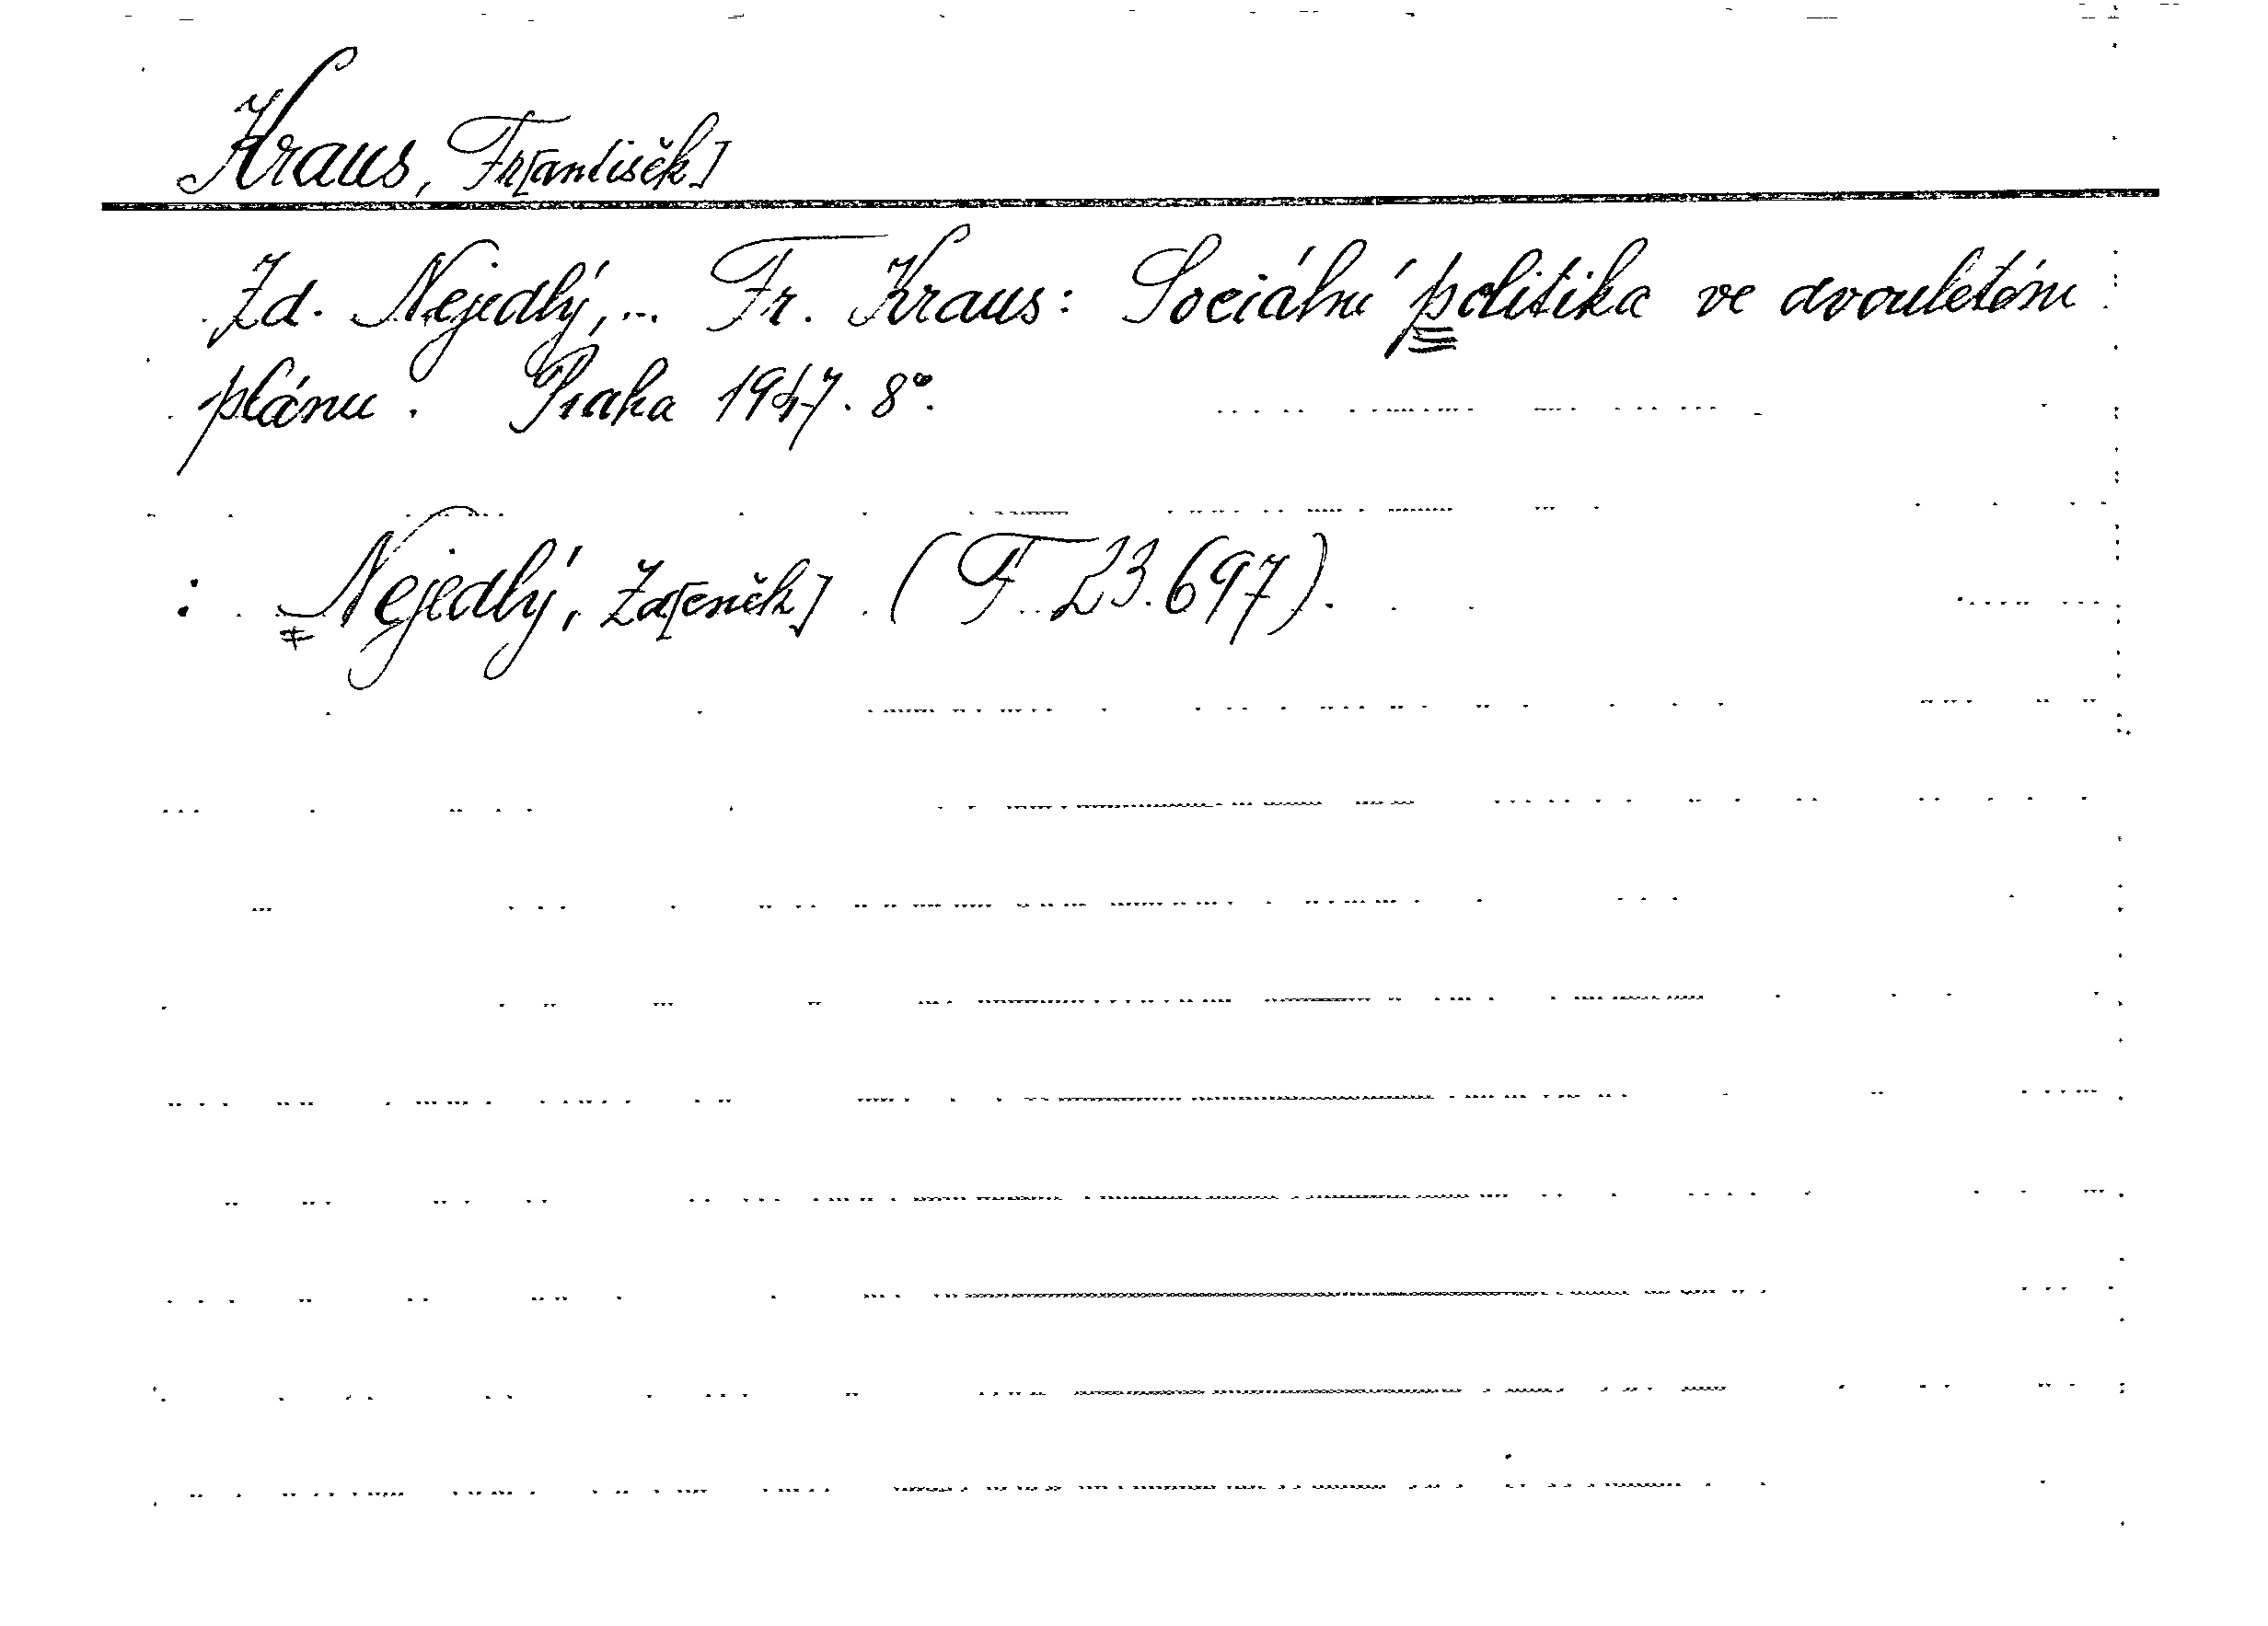 Kraus, Fr[antisěk]
Zd. Nejedlý, ... Fr. Kraus: Sociální politika ve dvouletém
plánu. Praha 1947. 8°.
: Nejedlý, Zd[eněk] (F 23.697).